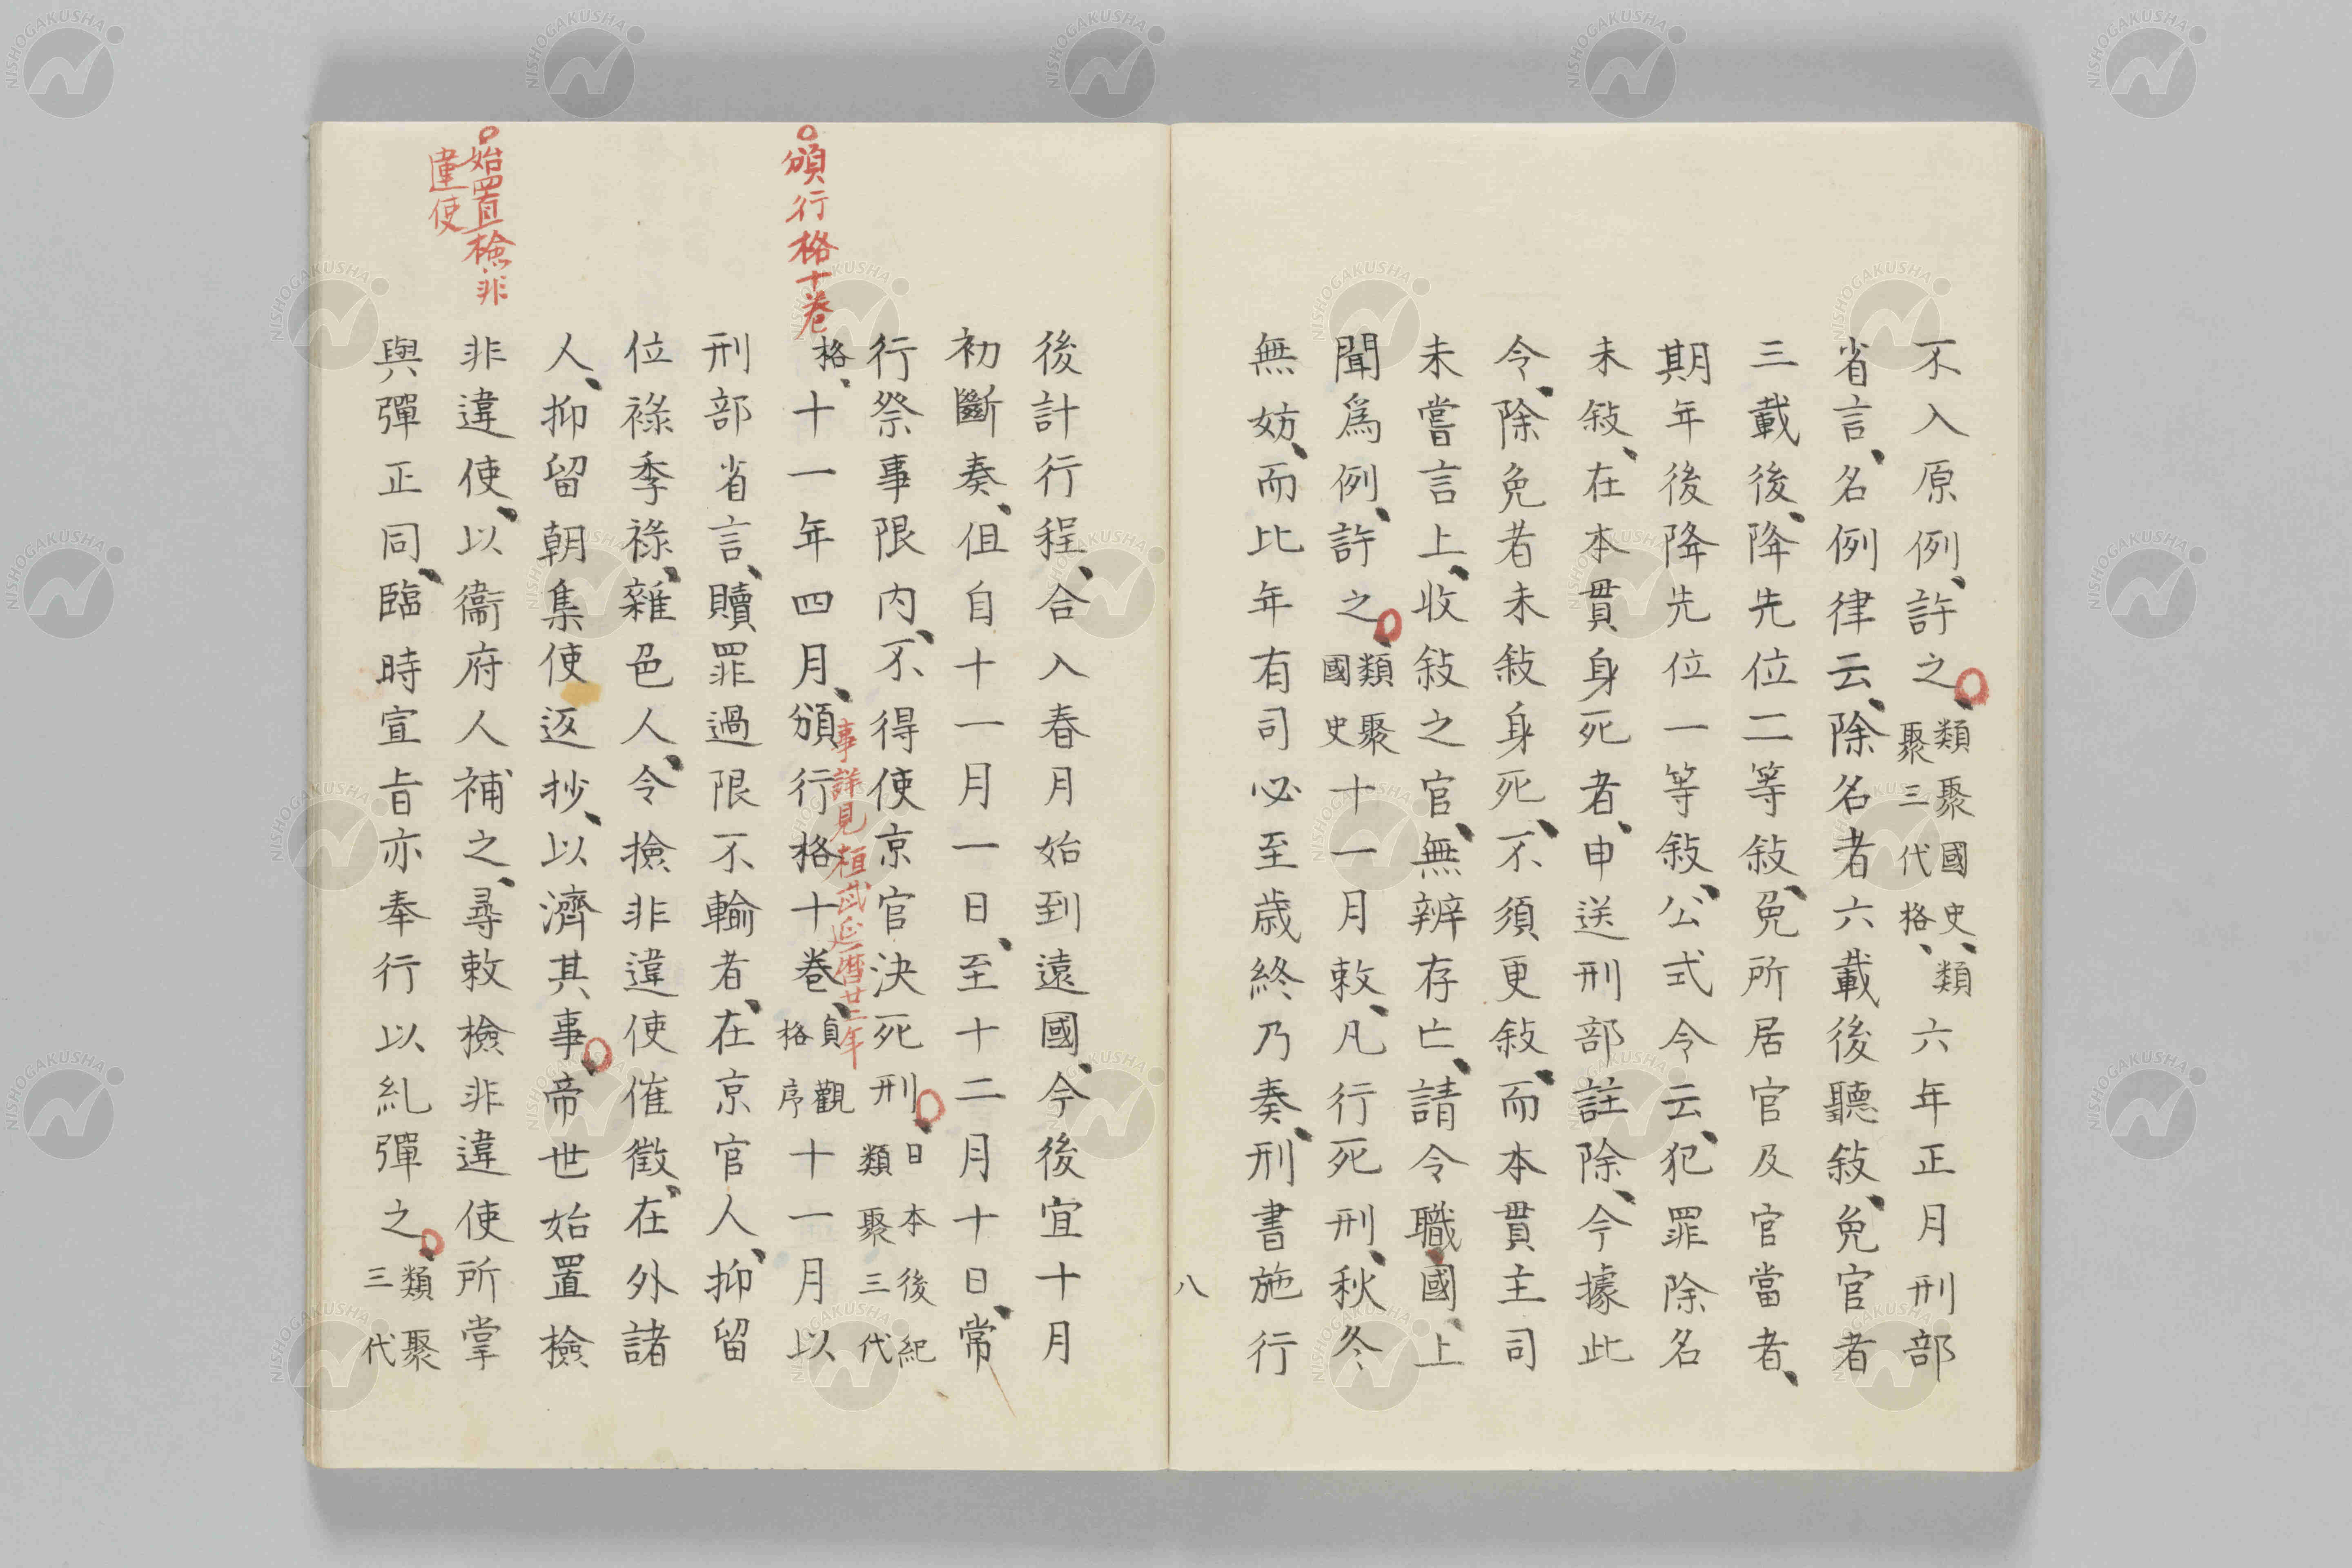 不入原例、許之、類聚國史、類聚三代格、六年正月刑部
省言、名例律云、除名者六載後聽敍、免官者
三載後、降先位二等敍、免所居官及官當者、
期年後降先位一等敍、公式令云、犯罪除名
未敍、在本貫身死者、申送刑部註除、今據此
令、除免者未敍身死、不須更敍、而本貫主司
未嘗言上、收敍之官、無辨存亡、請令職國上
聞爲例、許之、類聚國史十一月敕、凡行死刑、秋冬
無妨、而比年有司必至歳終乃奏、刑書施行
八
後計行程、合入春月始到遠國、今後宜十月
初斷奏、但自十一月一日、至十二月十日、常
行祭事限内、不得使京官決死刑、日本後紀類聚三代
格、十一年四月、頒行格十卷、貞觀格序十一月以
事詳見桓武延暦廿二年
頒行格十卷
刑部省言、贖罪過限不輸者、在京官人、抑留
位祿季祿、雜色人、令撿非違使催徴、在外諸
人、抑留朝集使返抄、以濟其事、帝世始置檢
非違使、以衞府人補之、尋敕檢非違使所掌
始置檢非
違使
與彈正同、臨時宣旨亦奉行以糺彈之、類聚三代
NISHOGAKUSHA